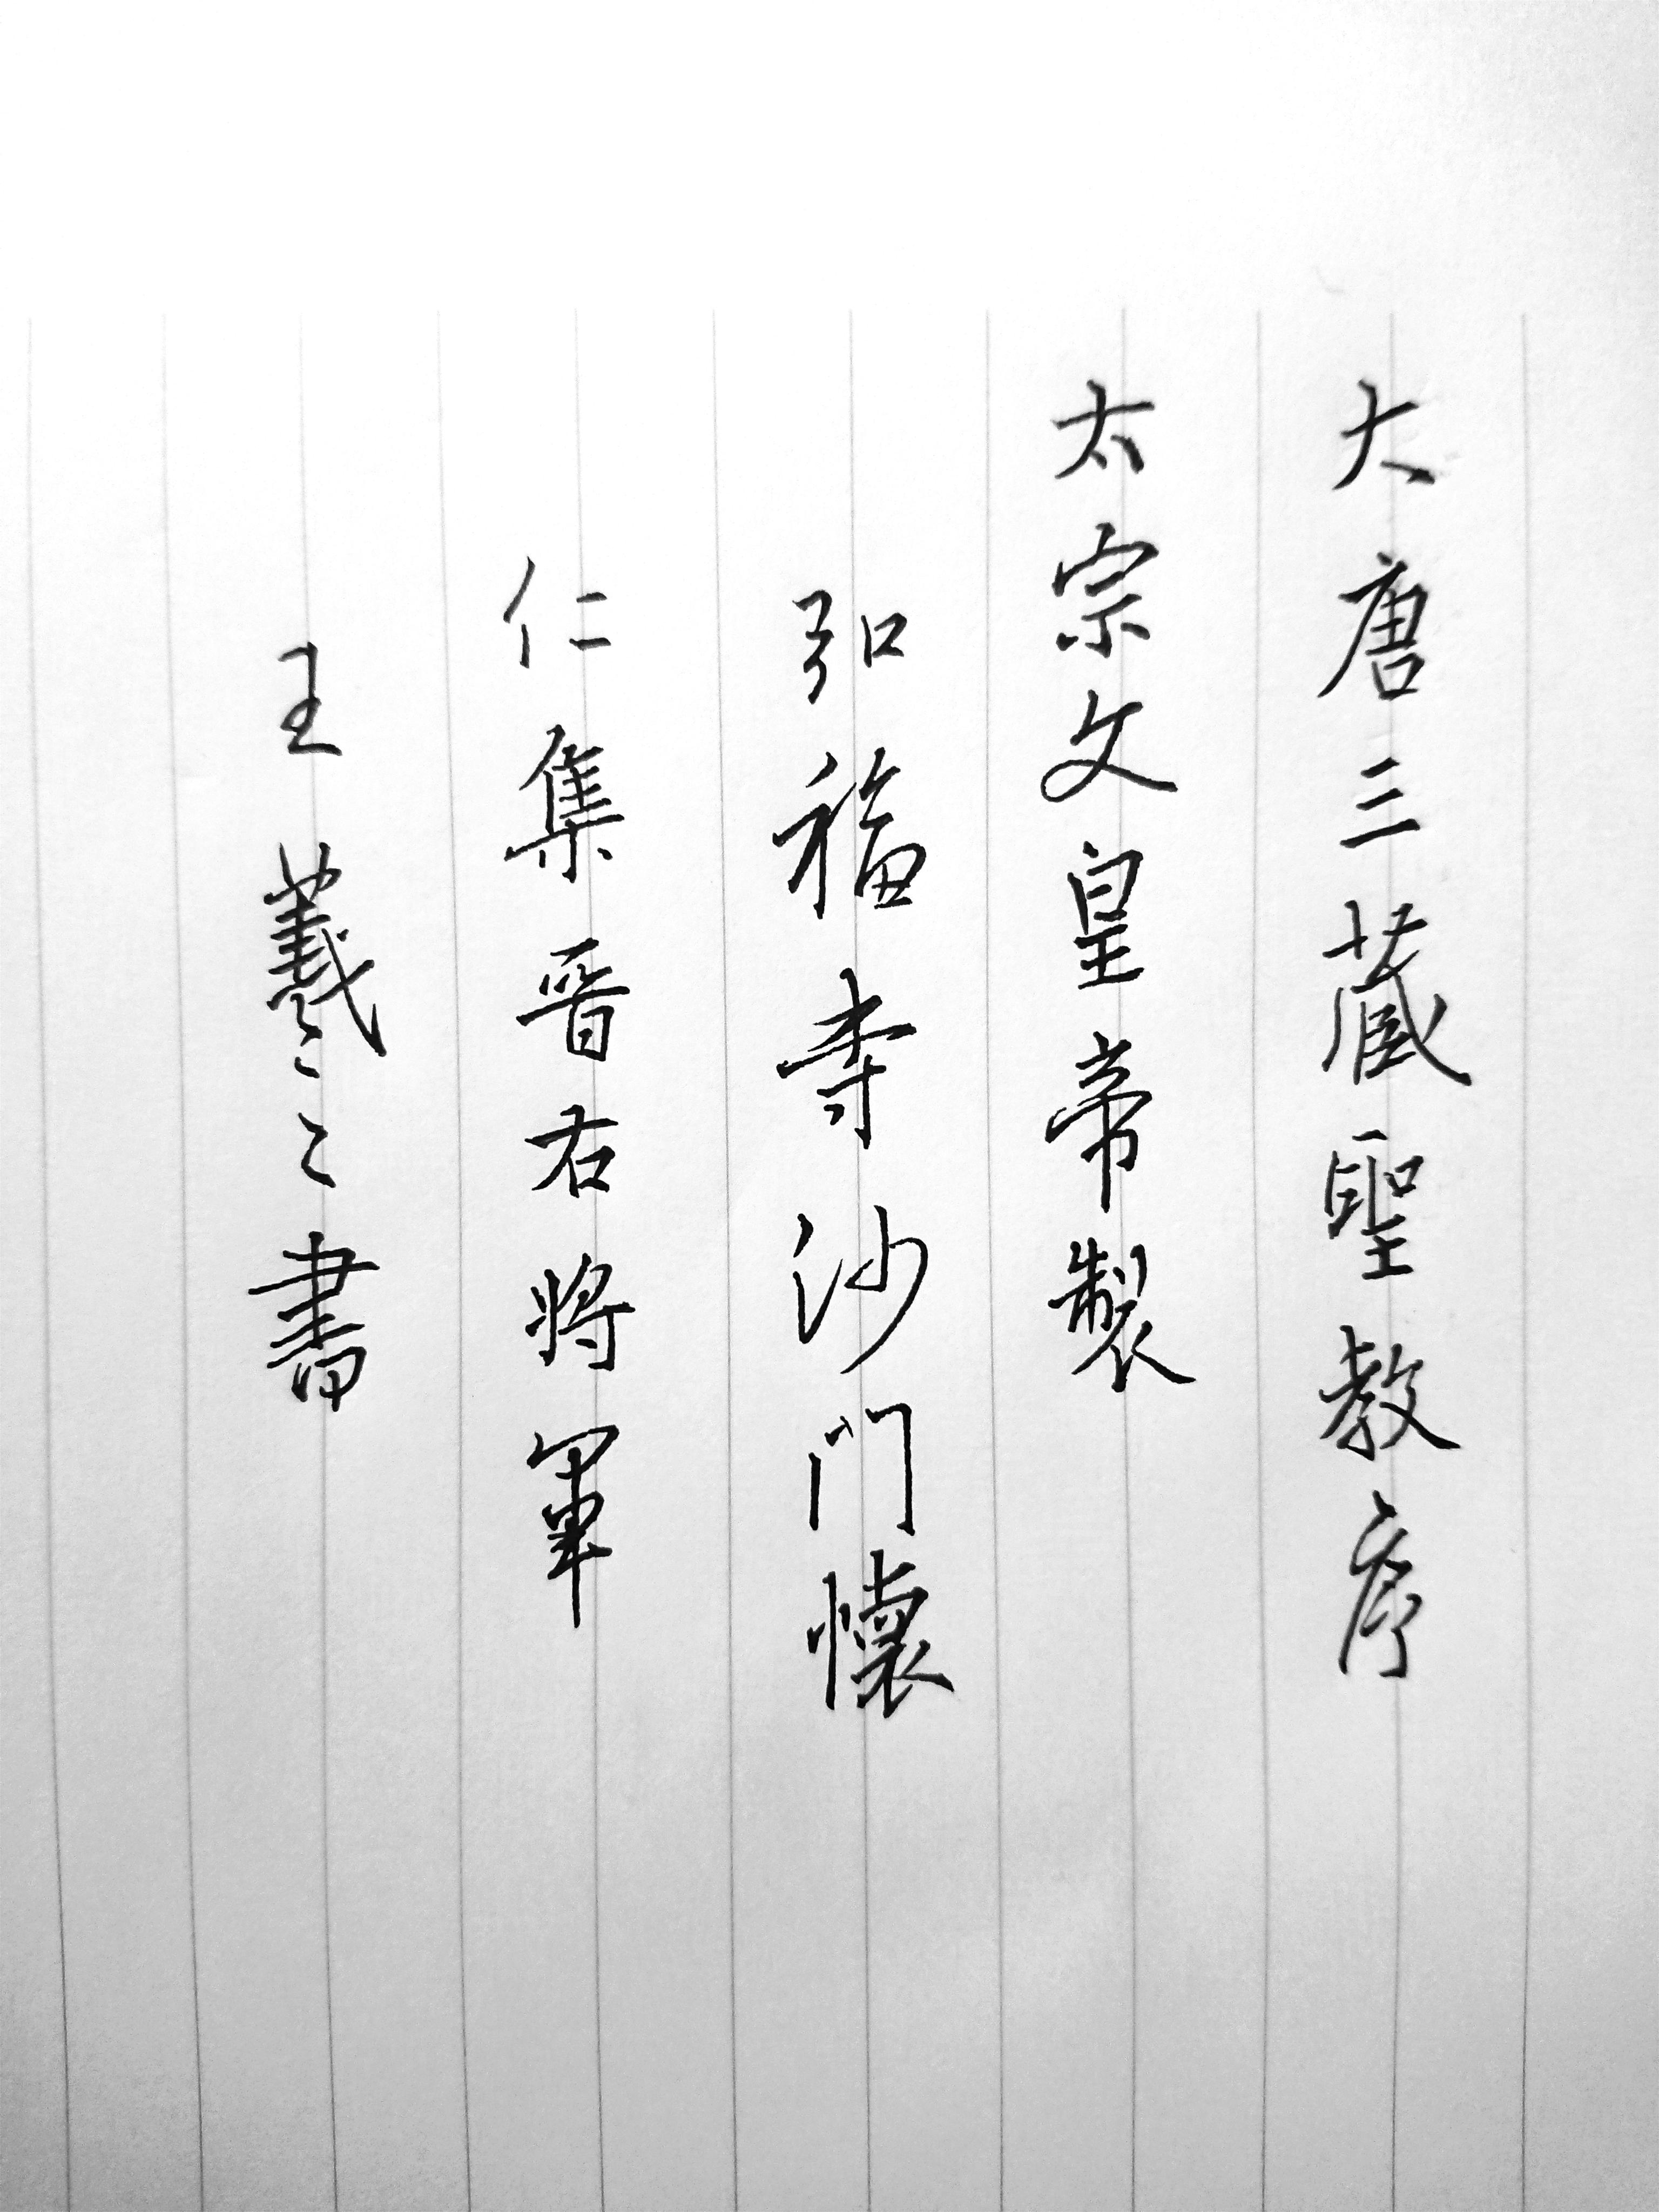 大唐三藏聖教序
太宗文皇帝製
弘福寺沙门懷
仁集晋右将軍
王羲之書